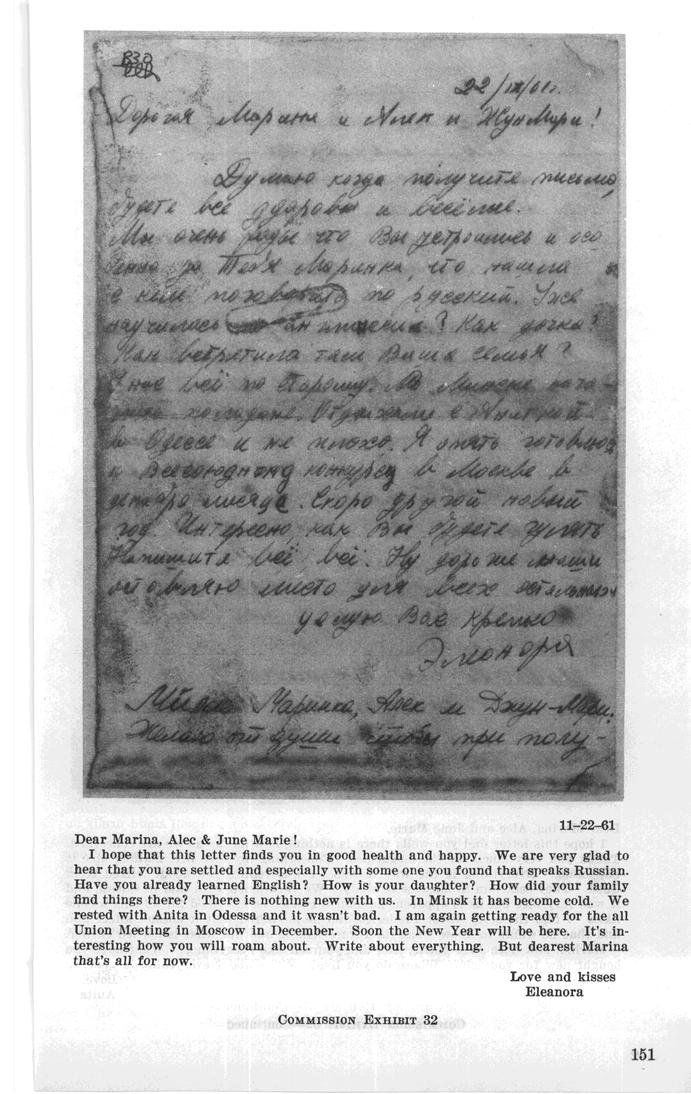 Дорогая Марина и Алек и Жун Мари!
Думаю когда получите письмо,
будете все здоровы и весёлые.
Мы очень рады что Вы устроились и осо
бенно за Тебя Маринка, что нашла
с кем поговорить по русский. Уже
научилась английский? Как дочка?
Как встретила там Ваша семья?
У нас всё по старому. Минске
холодно. Отдыхали с Аниткой
в Одессе и не плохо. Я опять готовлюсь
к Всесоюзному конкурсу в Москве в
декабре месяце. Скоро другой новый
год. Интересно, как Вы будете гулять
Напишите всё, всё. Ну дорогие мои
оставляю место для всех остальных
целую Вас крепко
Элеонора
Милые Маринка, Алек и Джун-Мари.
Желаю от души чтобы при полу-
11–22–61
Dear Marina, Alec & June Marie!
I hope that this letter finds you in good health and happy. We are very glad to
hear that you are settled and especially with some one you found that speaks Russian.
Have you already learned English? How is your daughter? How did your family
find things there? There is nothing new with us. In Minsk it has become cold. We
rested with Anita in Odessa and it wasn't bad. I am again getting ready for the all
Union Meeting in Moscow in December. Soon the New Year will be here. It's in-
teresting how you will roam about. Write about everything. But dearest Marina
that's all for now.
Love and kisses
Eleanora
COMMISSION EXHIBIT 32
151